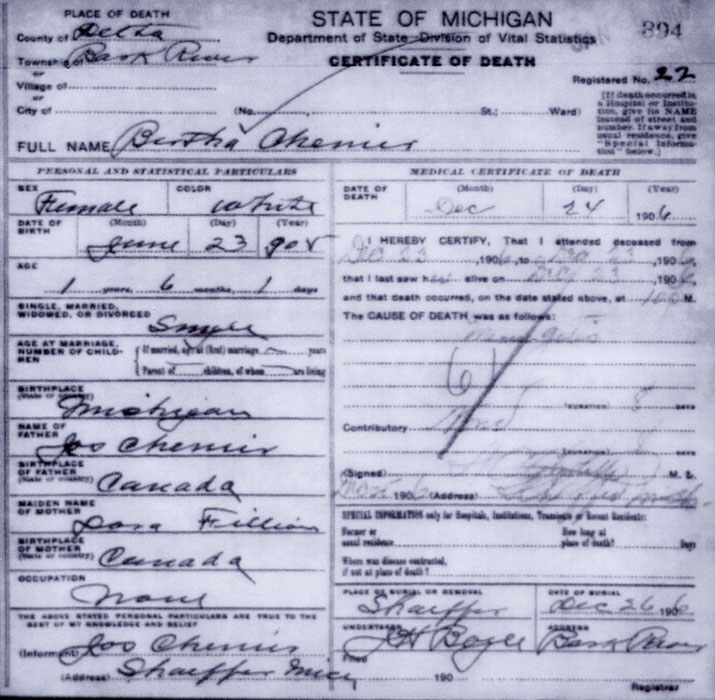 PLACE OF DEATH
County of Delta
Township of Bark River
or
Village of
or
City of
STATE OF MICHIGAN
Department of State—Division of Vital Statistics
CERTIFICATE OF DEATH
894
Registered No. 22
(No. St.; Ward)
[If death occurred in
a Hospital or Institu-
tion, give its NAME
instead of street and
number. If away from
usual residence, give
"Special Informa-
tion" below.]
FULL NAME Bertha Chenier
PERSONAL AND STATISTICAL PARTICULARS
SEX Female
COLOR White
DATE OF BIRTH (Month) (Day) (Year)
June 23 905
AGE
1 years, 6 months, 1 days
SINGLE, MARRIED,
WIDOWED, OR DIVORCED
Single
AGE AT MARRIAGE,
NUMBER OF CHILD-
REN
If married, age at (first) marriage years
Parent of children, of whom are living
BIRTHPLACE
(State or country)
Michigan
NAME OF
FATHER
Jos Chenier
BIRTHPLACE
OF FATHER
(State or country)
Canada
MAIDEN NAME
OF MOTHER
Dora Fillion
BIRTHPLACE
OF MOTHER
(State or country)
Canada
OCCUPATION
None
THE ABOVE STATED PERSONAL PARTICULARS ARE TRUE TO THE
BEST OF MY KNOWLEDGE AND BELIEF
(Informant) Jos Chenier
(Address) Shaeffer Mich
MEDICAL CERTIFICATE OF DEATH
DATE OF DEATH (Month) (Day) (Year)
Dec 24 1906
I HEREBY CERTIFY, That I attended deceased from
Dec 23, 1906, to Dec 23, 1906,
that I last saw her alive on Dec 23, 1906,
and that death occurred, on the date stated above, at M.
The CAUSE OF DEATH was as follows:
61
(DURATION) 8 DAYS
Contributory
(DURATION) DAYS
(Signed) M. D.
190 (Address)
SPECIAL INFORMATION only for Hospitals, Institutions, Transients or Recent Residents:
Former or
usual residence
How long at
place of death? Days
Where was disease contracted,
if not at place of death?
PLACE OF BURIAL OR REMOVAL
Shaeffer
DATE OF BURIAL
Dec 26 1906
UNDERTAKER
J H Boyle
ADDRESS
Bark River
Filed 190
Registrar